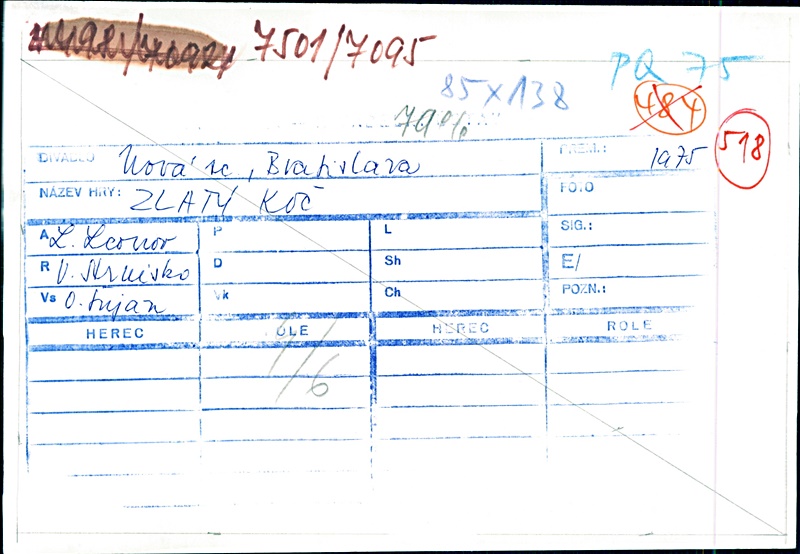 7501/7095
PQ 75
85 x 138
484
79%
518
DIVADLO Nová sc, Bratislava PREM.: 1975
NÁZEV HRY: ZLATÝ KOČ FOTO
A L. Leonov P L SIG.:
R V. Strnisko D Sh E/
Vs O. Šujan Vk Ch POZN.:
HEREC ROLE HEREC ROLE
1/6